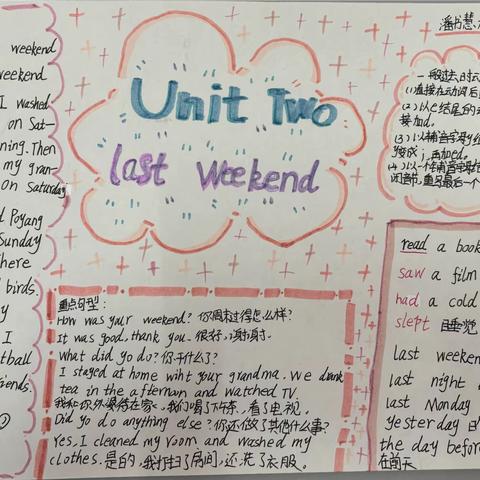 weekend
weekend
I washed
on Sat-
ning. Then
my gran-
on Saturday
Poyang
Sunday
here
birds.
I
tball
friends.
Unit Two
last weekend
重点句型：
How was your weekend? 你周末过得怎么样?
It was good, thank you. 很好，谢谢.
What did yo do? 你干什么了?
I stayed at home wiht your grandma. We drank
tea in the afternoon and watched TV
我和你外婆待在家，我们喝了下午茶，看了电视.
Did yo do anything else? 你还做了其他什么事?
Yes, I cleaned my room and washed my
clothes. 是的，我打扫了房间，还洗了衣服。
潘书慧
一般过去时
(1) 直接在动词后
(2) 以e结尾的
接加d.
(3) 以辅音字母
变成i，再加ed.
(4) 以一个辅音字母
闭音节，重另最后一个
read a book
saw a film
had a cold
slept 睡觉
last weekend
last night
last Monday
yesterday
the day before
在前天